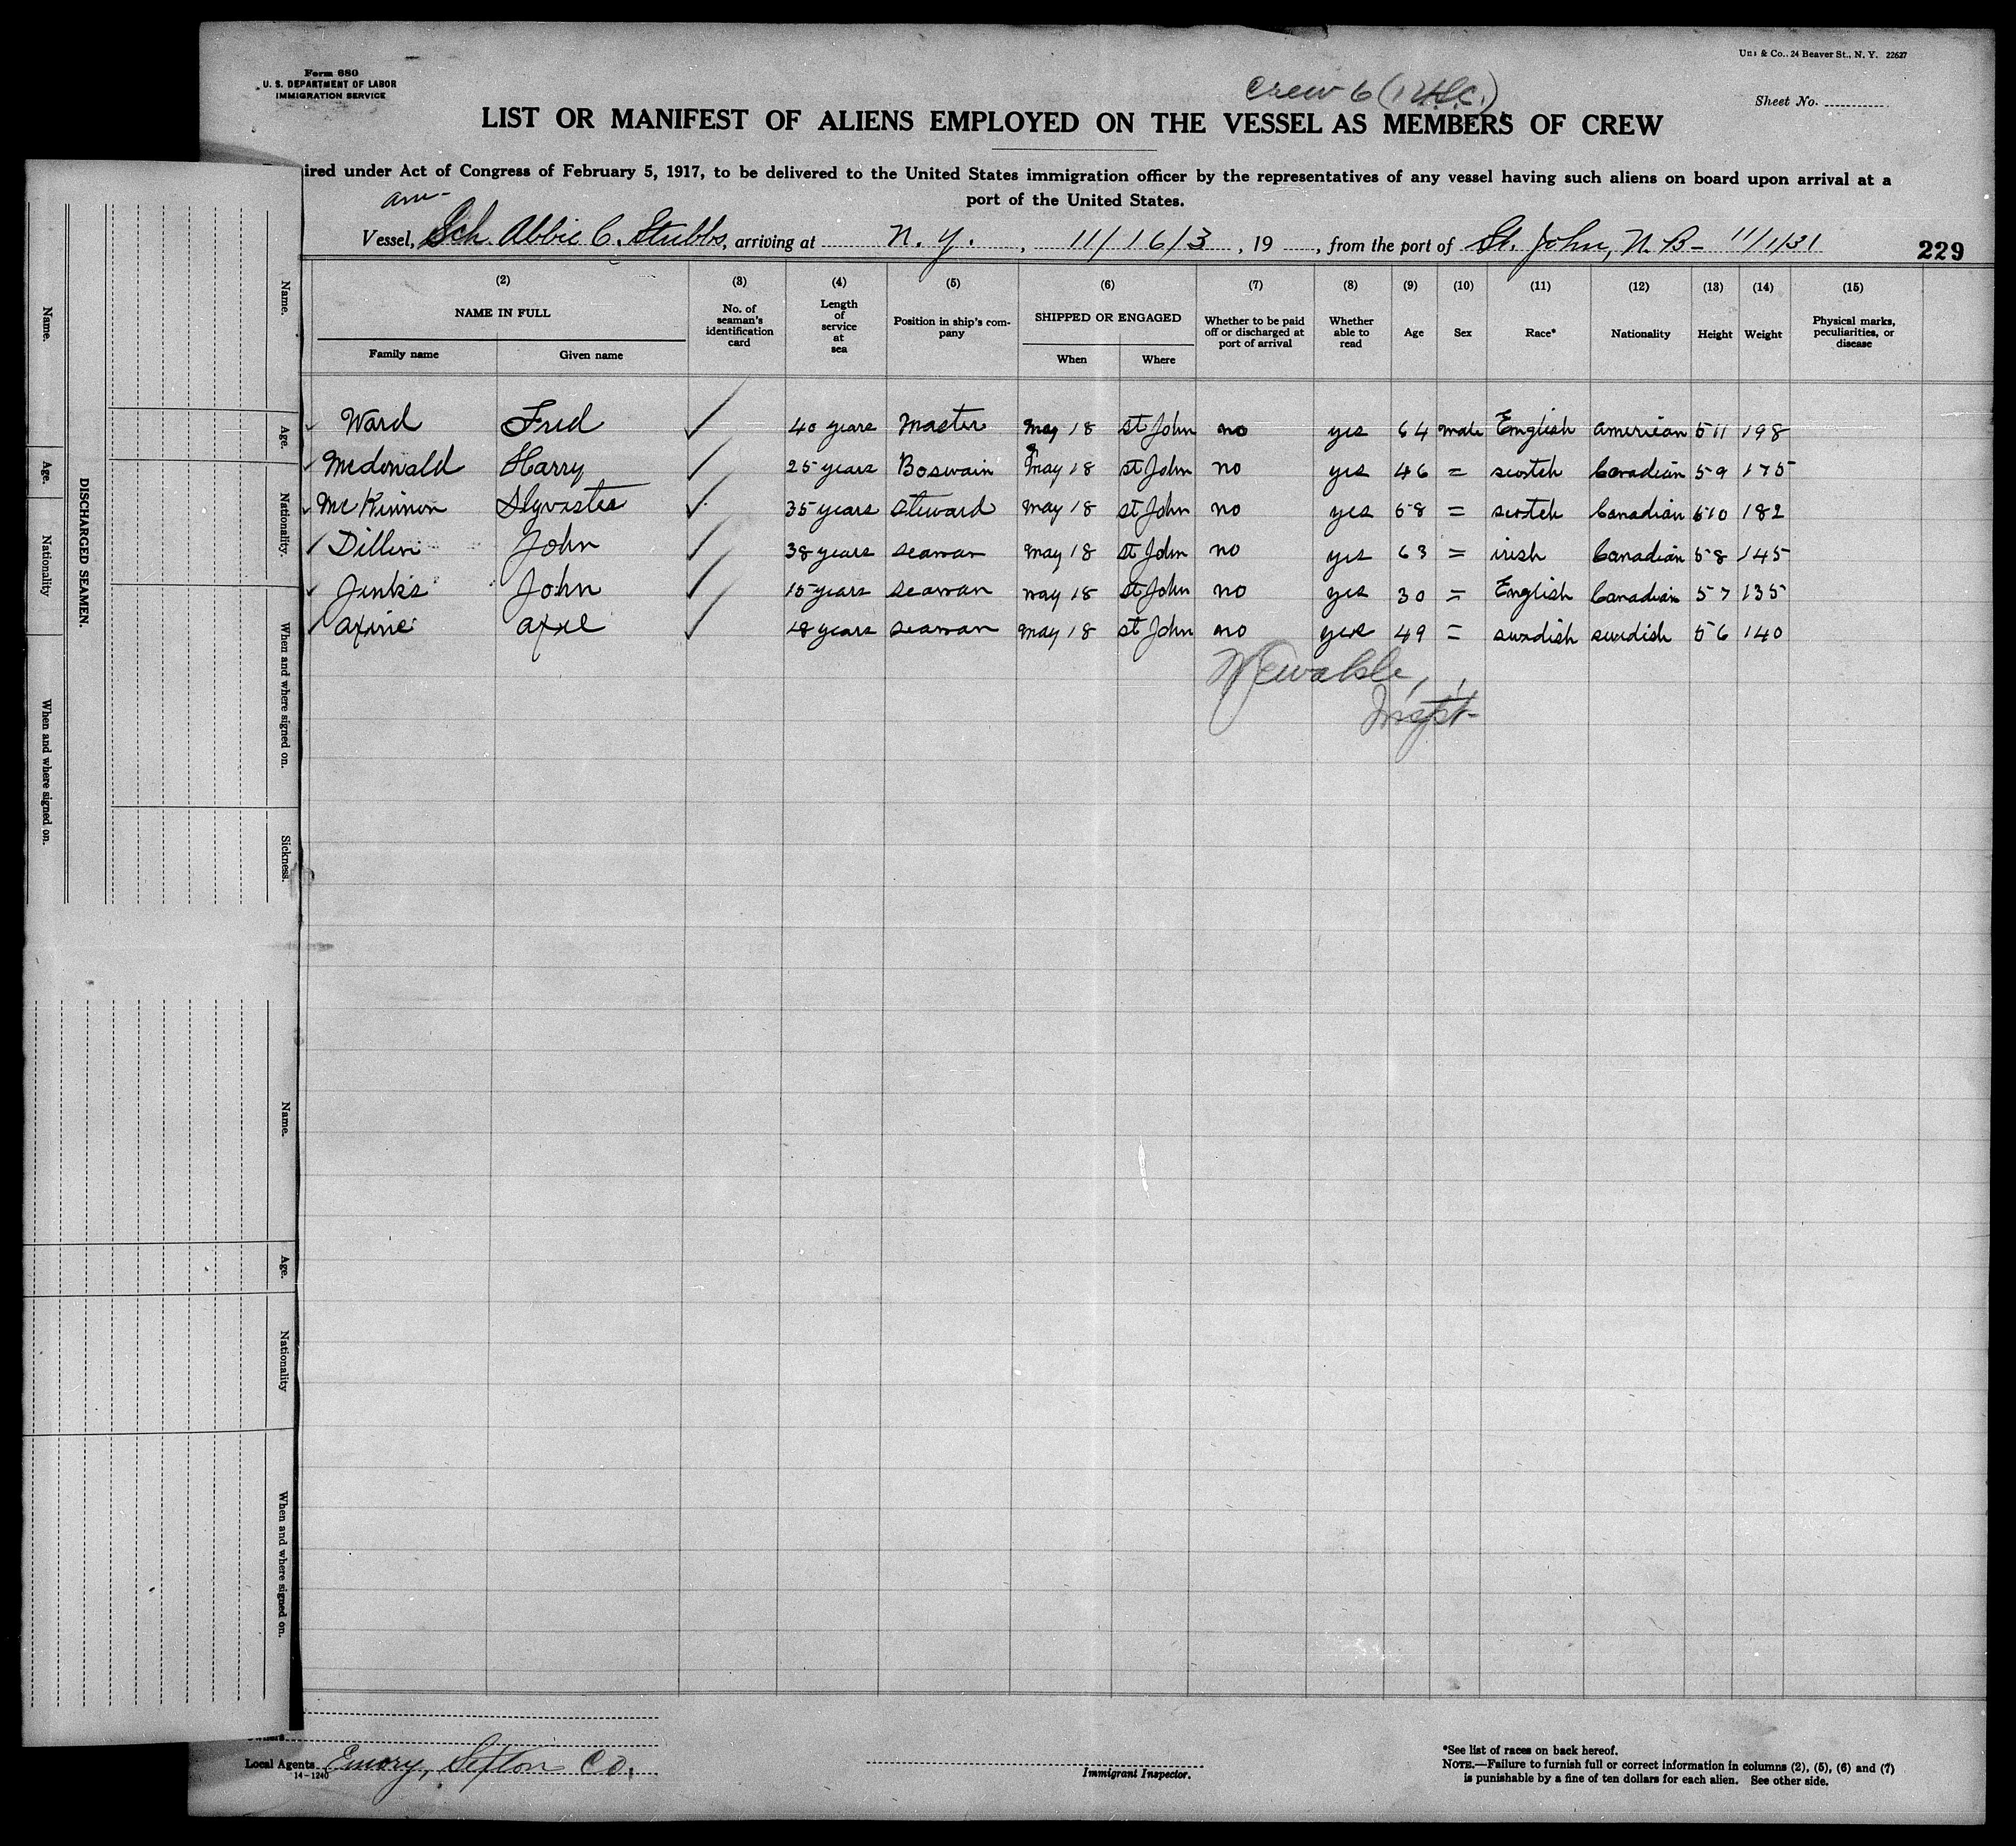 Form 680
U. S. DEPARTMENT OF LABOR
IMMIGRATION SERVICE
& Co., 24 Beaver St., N. Y. 22627
Sheet No.
Crew 6 (1 U.S.C.)
LIST OR MANIFEST OF ALIENS EMPLOYED ON THE VESSEL AS MEMBERS OF CREW
ired under Act of Congress of February 5, 1917, to be delivered to the United States immigration officer by the representatives of any vessel having such aliens on board upon arrival at a
port of the United States.
am
Vessel, Sch. Abbie C. Stubbs, arriving at N. Y. , 11/16/3 , 19 , from the port of St. John, N. B- 11/1/31
229
(2) (3) (4) (5) (6) (7) (8) (9) (10) (11) (12) (13) (14) (15)
NAME IN FULL No. of seaman's identification card Length of service at sea Position in ship's company SHIPPED OR ENGAGED Whether to be paid off or discharged at port of arrival Whether able to read Age Sex Race* Nationality Height Weight Physical marks, peculiarities, or disease
Family name Given name When Where
Ward Fred ✓ 40 years Master may 18 st John no yes 64 male English american 5 11 198
Mcdonald Harry ✓ 25 years Boswain may 18 st John no yes 46 = scotch Canadian 5 9 175
McKinnon Slyvester ✓ 35 years steward may 18 st John no yes 58 = scotch Canadian 5 10 182
Dillen John ✓ 38 years seaman may 18 st John no yes 63 = irish Canadian 5 8 145
Jenks John ✓ 15 years seaman may 18 st John no yes 30 = English Canadian 5 7 135
axine axel ✓ 18 years seaman may 18 st John no yes 49 = swedish swedish 5 6 140
Inspt-
Name.
Age.
Nationality
When and where signed on.
DISCHARGED SEAMEN.
Name.
Age.
Nationality.
When and where signed on.
Sickness.
Name.
Age.
Nationality
When and where signed on.
Local Agents Emory, Sexton Co.
14-1240
Immigrant Inspector.
*See list of races on back hereof.
NOTE.—Failure to furnish full or correct information in columns (2), (5), (6) and (7)
is punishable by a fine of ten dollars for each alien. See other side.